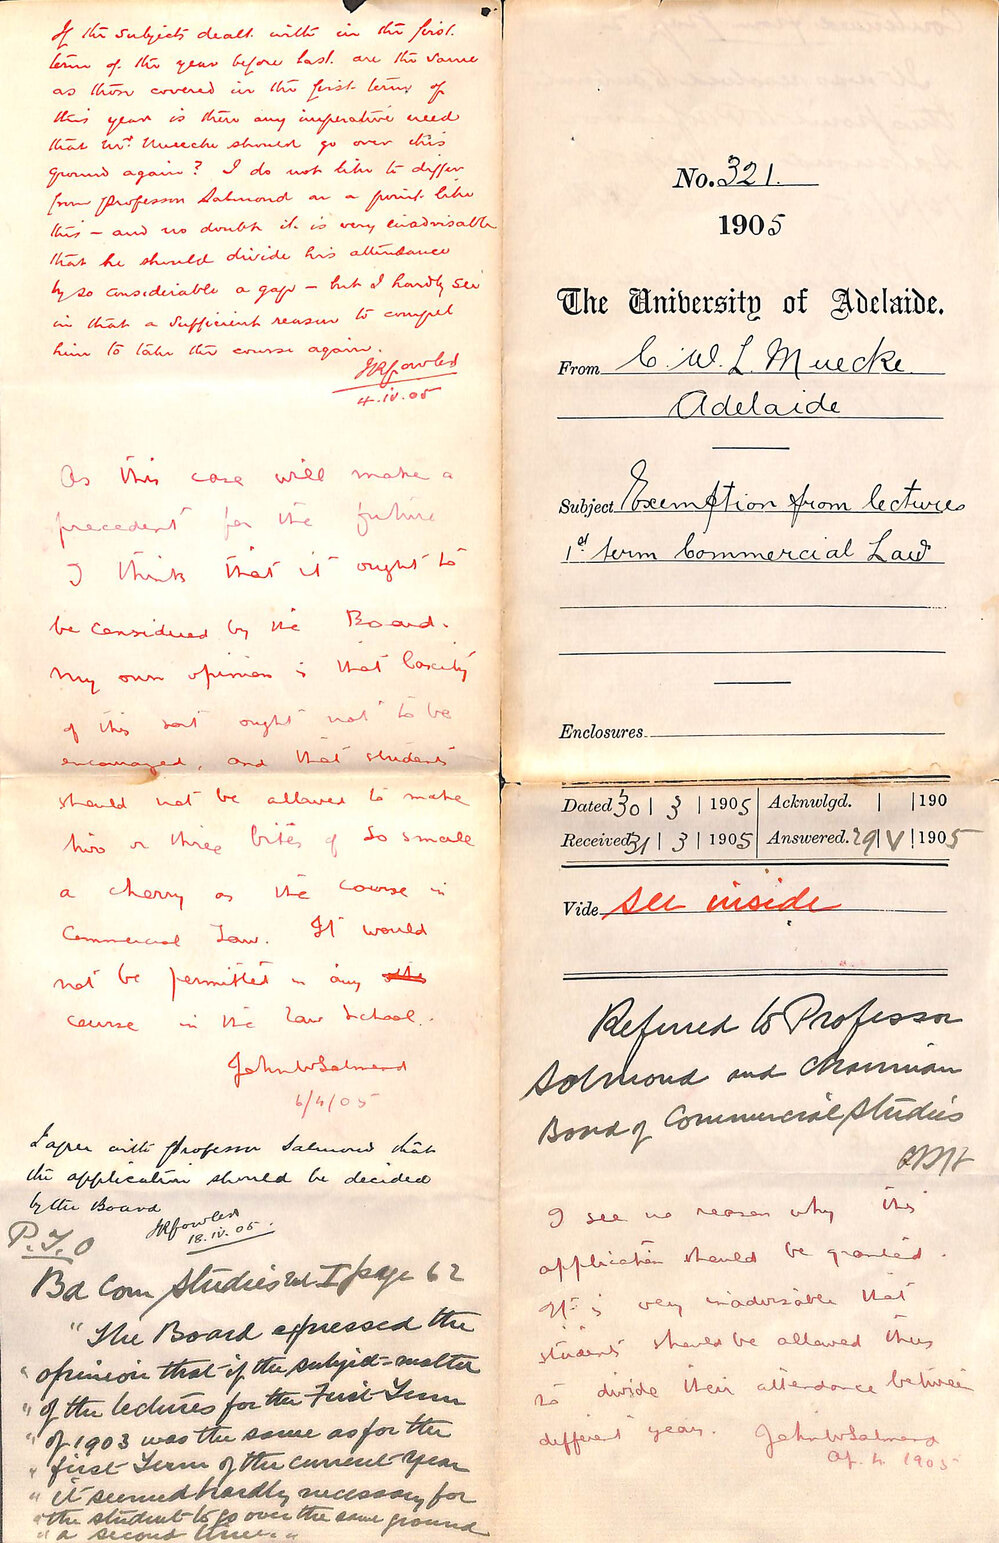 If the subjects dealt with in the first
term of the year before last are the same
as those covered in the first term of
this year is there any imperative need
that Mr. Muecke should go over this
ground again? I do not like to differ
from Professor Salmond on a point like
this – and no doubt it is very inadvisable
that he should divide his attendance
by so considerable a gap – but I hardly see
in that a sufficient reason to compel
him to take the course again.
JRFowler
4.iv.05
As this case will make a
precedent for the future
I think that it ought to
be considered by the Board.
My own opinion is that laxity
of this sort ought not to be
encouraged, and that students
should not be allowed to make
two or three bites of so small
a cherry as the course in
Commercial Law. It would
not be permitted in any
course in the Law School.
John W Salmond
6/4/05
I agree with Professor Salmond that
the application should be decided
by the Board
JRFowler
18.iv.05.
P.T.O
Bd Com Studies Vol I page 62
"The Board expressed the
"opinion that if the subject-matter
"of the lectures for the First Term
"of 1903 was the same as for the
"first Term of the current year
"it seemed hardly necessary for
"the student to go over the same ground
"a second time."
No. 321.
1905
The University of Adelaide.
From C. W. L. Muecke.
Adelaide
Subject Exemption from lectures
1st term Commercial Law
Enclosures
Dated 30 | 3 | 1905 Acknwlgd. | | 190
Received 31 | 3 | 1905 Answered. 29 | V | 1905
Vide see inside
Referred to Professor
Salmond and Chairman
Board of Commercial Studies
I see no reason why this
application should be granted.
It is very inadvisable that
students should be allowed thus
to divide their attendance between
different years. John W Salmond
Ap. 4 1905